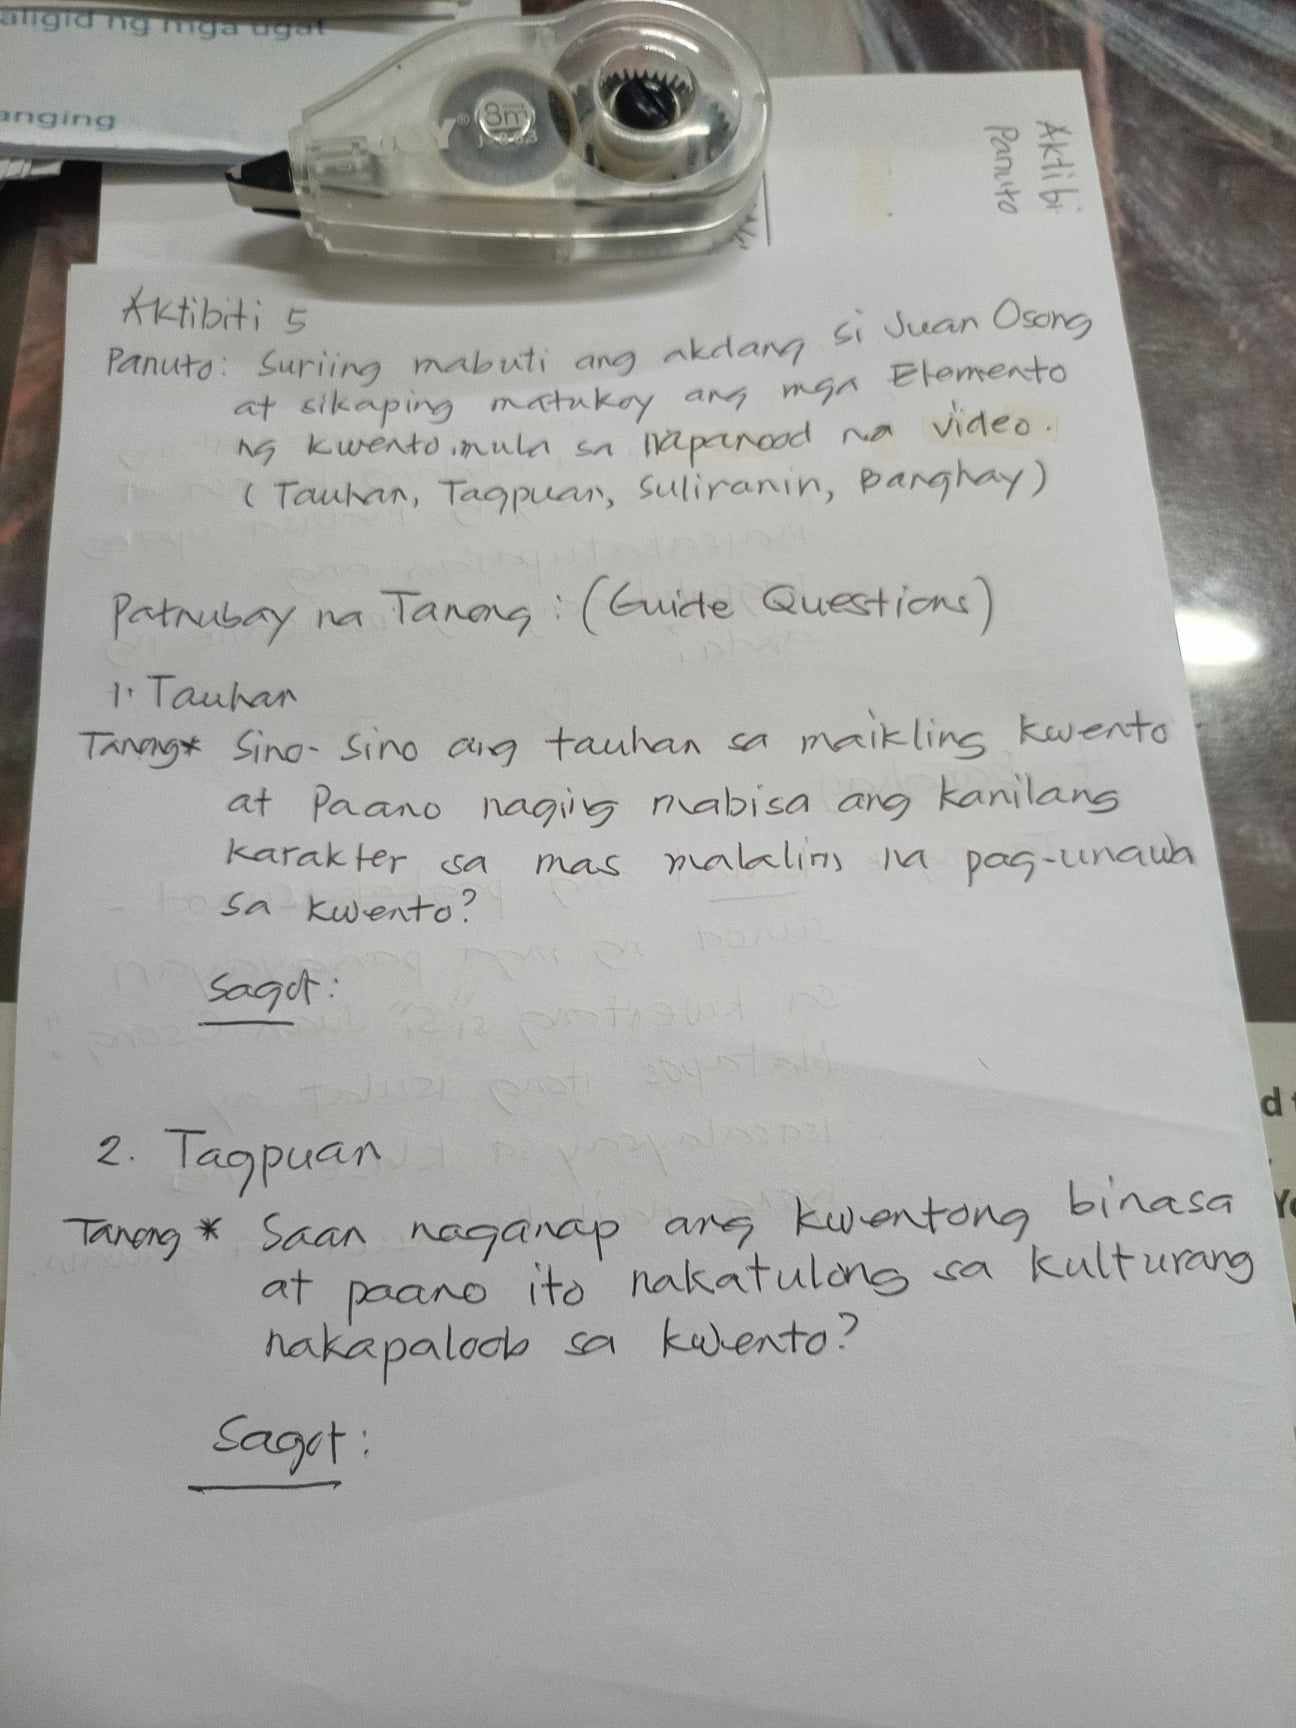 aligid ng mga ugat
anging
8m
Aktibi
Panuto
Aktibiti 5
Panuto: Suriing mabuti ang akdang si Juan Osong
at sikaping matukoy ang mga Elemento
ng kwento mula sa napanood na video.
(Tauhan, Tagpuan, Suliranin, Banghay)
Patnubay na Tanong: (Guide Questions)
1. Tauhan
Tanong* Sino-sino ang tauhan sa maikling kwento
at Paano naging mabisa ang kanilang
karakter sa mas malalim na pag-unawa
sa kwento?
Sagot:
2. Tagpuan
Tanong * Saan naganap ang kwentong binasa
at paano ito nakatulong sa kulturang
nakapaloob sa kwento?
Sagot: